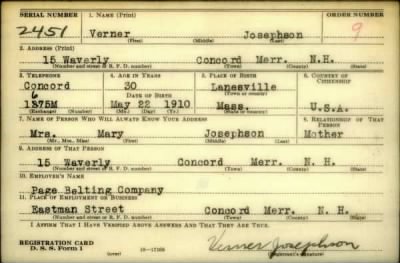 SERIAL NUMBER 1. NAME (Print) ORDER NUMBER
2451 Verner Josephson 9
(First) (Middle) (Last)
2. ADDRESS (Print)
15 Waverly Concord Merr. N.H.
(Number and street or R. F. D. number) (Town) (County) (State)
3. TELEPHONE 4. AGE IN YEARS 5. PLACE OF BIRTH 6. COUNTRY OF CITIZENSHIP
Concord 30 Lanesville
6 DATE OF BIRTH (Town or county)
1375M May 22 1910 Mass. U.S.A.
(Exchange) (Number) (Mo.) (Day) (Yr.) (State or country)
7. NAME OF PERSON WHO WILL ALWAYS KNOW YOUR ADDRESS 8. RELATIONSHIP OF THAT PERSON
Mrs. Mary Josephson Mother
(Mr., Mrs., Miss) (First) (Middle) (Last)
9. ADDRESS OF THAT PERSON
15 Waverly Concord Merr. N. H.
(Number and street or R. F. D. number) (Town) (County) (State)
10. EMPLOYER'S NAME
Page Belting Company
11. PLACE OF EMPLOYMENT OR BUSINESS
Eastman Street Concord Merr. N. H.
(Number and street or R. F. D. number) (Town) (County) (State)
I AFFIRM THAT I HAVE VERIFIED ABOVE ANSWERS AND THAT THEY ARE TRUE.
REGISTRATION CARD
D. S. S. Form 1 (over) 16-17105 Verner Josephson
(Registrant's signature)